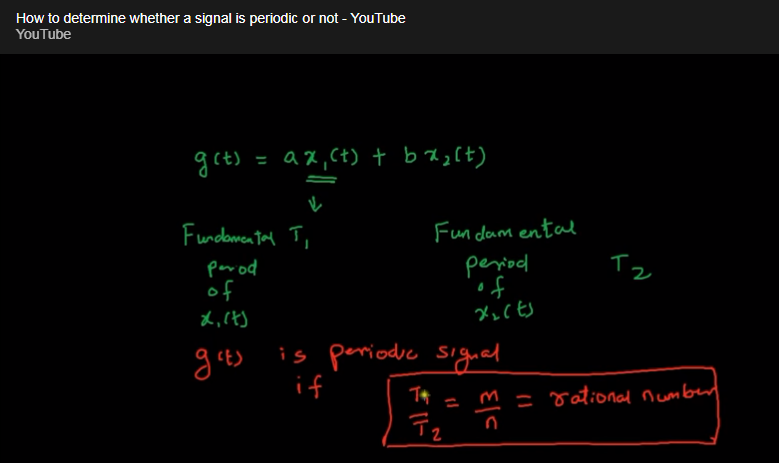 How to determine whether a signal is periodic or not - YouTube
YouTube
g(t) = a x₁(t) + b x₂(t)
Fundamental T₁
period
of
x₁(t)
Fundamental
period T₂
of
x₂(t)
g(t) is periodic signal
if
T₁/T₂ = m/n = rational number